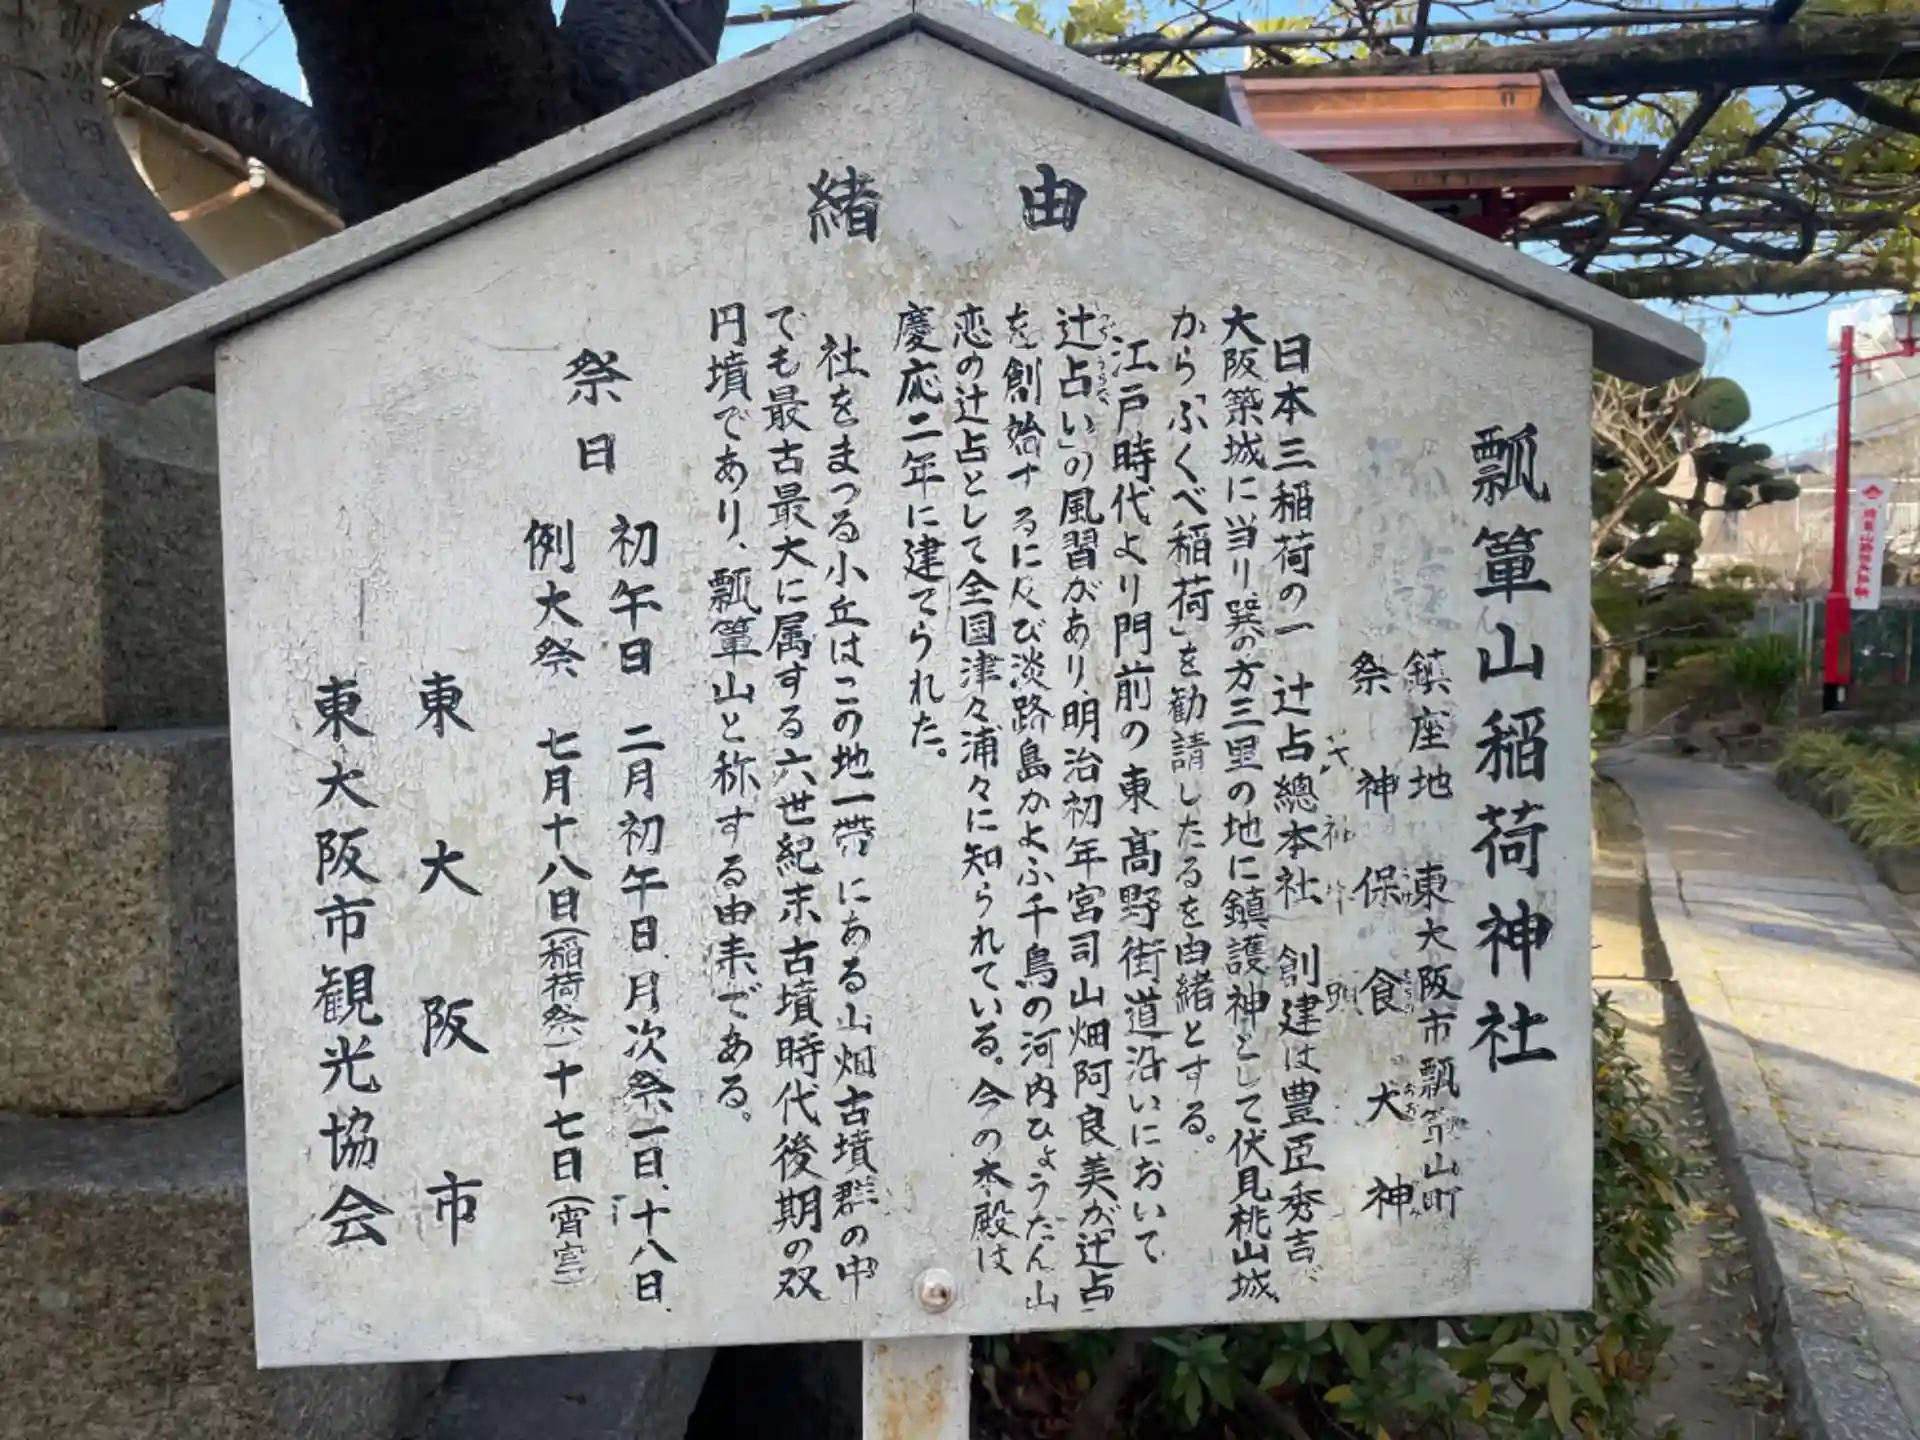 由緒
瓢箪山稲荷神社
鎮座地 東大阪市瓢箪山町
祭神 保食大神
日本三稲荷の一 辻占總本社 創建は豊臣秀吉が
大阪築城に当り、巽の方三里の地に鎮護神として伏見桃山城
から「ふくべ稲荷」を勧請したるを由緒とする。
江戸時代より門前の東高野街道沿いにおいて
「辻占い」の風習があり、明治初年宮司山畑阿良美が「辻占」
を創始するに及び淡路島かよふ千鳥の河内ひょうたん山
恋の辻占として全国津々浦々に知られている。今の本殿は
慶応二年に建てられた。
社をまつる小丘はこの地一帯にある山畑古墳群の中
でも最古最大に属する六世紀末古墳時代後期の双
円墳であり、瓢箪山と称する由来である。
祭日
初午日 二月初午日、月次祭、一日、十八日、
例大祭 七月十八日(稲荷祭)十七日(宵宮)
東大阪市
東大阪市観光協会